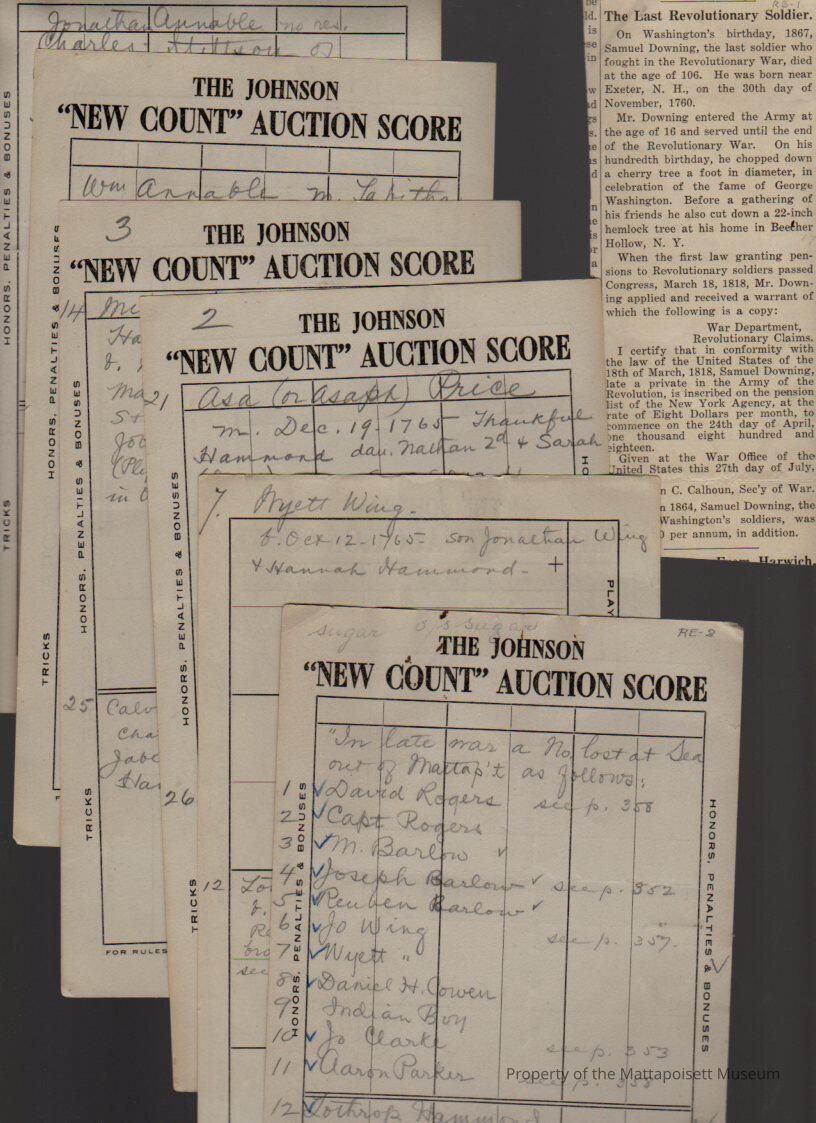 Jonathan Annable no res.
Charles Stittson of
HONORS, PENALTIES & BONUSES
TRICKS
THE JOHNSON
"NEW COUNT" AUCTION SCORE
Wm Annable m. Tabitha
HONORS, PENALTIES & BONUSES
TRICKS
3
THE JOHNSON
"NEW COUNT" AUCTION SCORE
14
Ha
Ma
in
25 Calv
Cha
Jabe
Ha
HONORS, PENALTIES & BONUSES
TRICKS
FOR RULES
2
THE JOHNSON
"NEW COUNT" AUCTION SCORE
21 Asa (or Asaph) Price
m. Dec. 19-1765 Thankful
Hammond dau. Nathan 2d & Sarah
HONORS, PENALTIES & BONUSES
26
TRICKS
HO
7. Wyett Wing.
b. Oct 12-1765- son Jonathan Wing
& Hannah Hammond- +
PLAY
12
see
RE-2
sugar o/s sugar
THE JOHNSON
"NEW COUNT" AUCTION SCORE
"In late war a No. lost at Sea
out of Mattap't as follows:
1 ✓ David Rogers see p. 358
2 ✓ Capt Rogers
3 ✓ M. Barlow ✓
4 ✓ Joseph Barlow ✓ see p. 352
5 ✓ Reuben Barlow ✓ "
6 ✓ Jo Wing see p. 357.
7 ✓ Wyett "
8 ✓ Daniel H. Cowen
9 Indian Boy
10 ✓ Jo Clarke see p. 353
11 ✓ Aaron Parker see p. 358
12 ✓ Lothrop Hammond
HONORS, PENALTIES & BONUSES
HONORS, PENALTIES & BONUSES
RE-1
The Last Revolutionary Soldier.
On Washington's birthday, 1867,
Samuel Downing, the last soldier who
fought in the Revolutionary War, died
at the age of 106. He was born near
Exeter, N. H., on the 30th day of
November, 1760.
Mr. Downing entered the Army at
the age of 16 and served until the end
of the Revolutionary War. On his
hundredth birthday, he chopped down
a cherry tree a foot in diameter, in
celebration of the fame of George
Washington. Before a gathering of
his friends he also cut down a 22-inch
hemlock tree at his home in Beecher
Hollow, N. Y.
When the first law granting pen-
sions to Revolutionary soldiers passed
Congress, March 18, 1818, Mr. Down-
ing applied and received a warrant of
which the following is a copy:
War Department,
Revolutionary Claims.
I certify that in conformity with
the law of the United States of the
18th of March, 1818, Samuel Downing,
late a private in the Army of the
Revolution, is inscribed on the pension
list of the New York Agency, at the
rate of Eight Dollars per month, to
commence on the 24th day of April,
one thousand eight hundred and
eighteen.
Given at the War Office of the
United States this 27th day of July,
n C. Calhoun, Sec'y of War.
n 1864, Samuel Downing, the
Washington's soldiers, was
0 per annum, in addition.
From Harwich.
Property of the Mattapoisett Museum